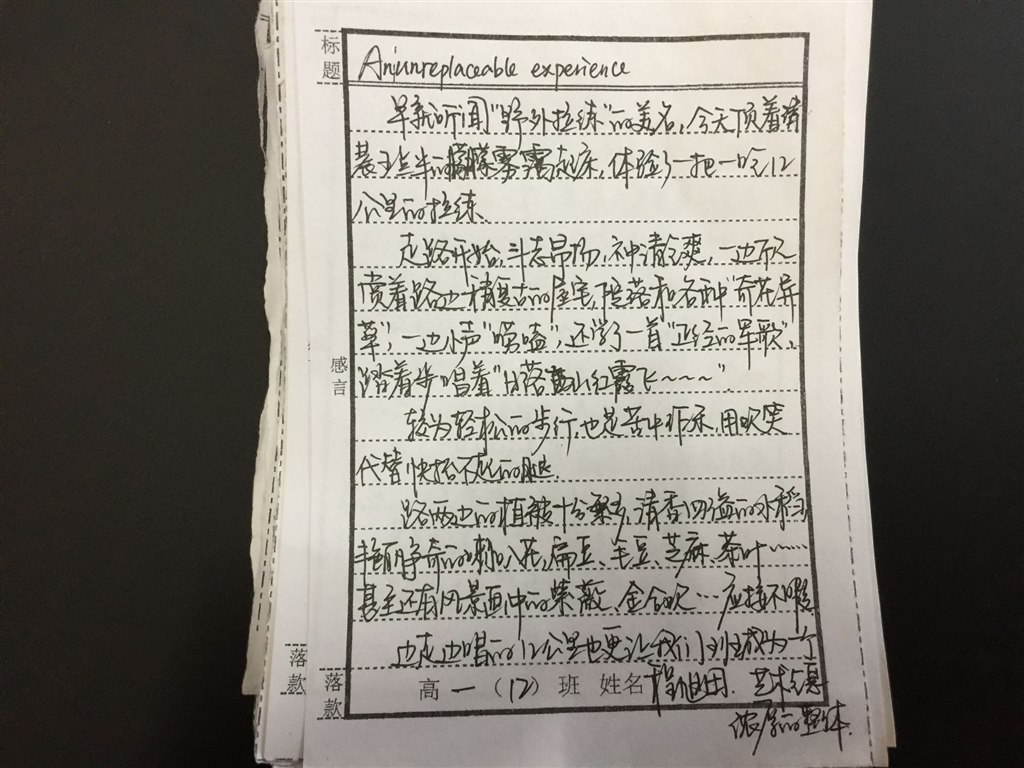 标题
An unreplaceable experience
早就听闻"野外拉练"的美名，今天顶着清
晨五点半的朦胧雾霭起床，体验了一把一吃12
公里的拉练。
走路开始，斗志昂扬，神清气爽，一边欣
赏着路边精复古的屋宅，院落和各种"奇花异
草"，一边小声"唠嗑"，还学了一首"正经的军歌"，
踏着步唱着"日落西山红霞飞~~~"。
较为轻松的步行，也是苦中作乐，用欢笑
代替快抬不起的腿。
路两边的植被十分繁多，清香四溢的水稻，
艳丽争奇的喇叭花，扁豆、毛豆、芝麻、茶叶……
甚至还有风景画中的紫薇、金合欢…应接不暇
边走边唱的12公里也更让我们班成为一个
感言
落款
落款
高一（12）班 姓名
艺术气息
浓厚的整体.